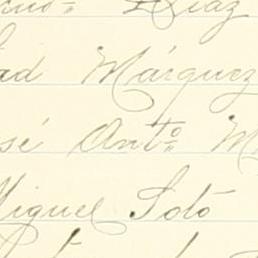 Díaz
Márquez
sé Antº M
Miguel Soto